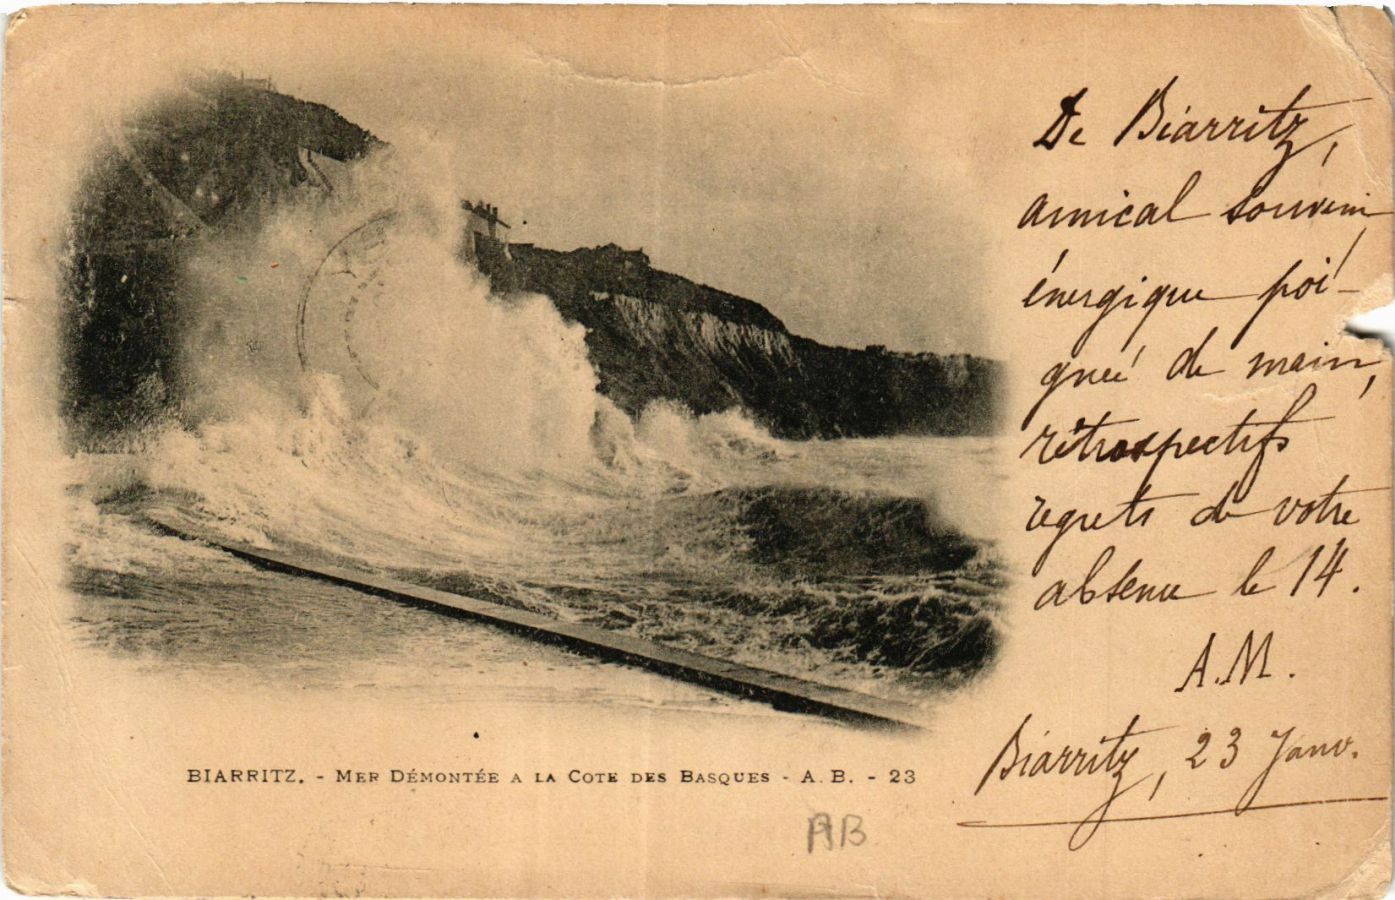 De Biarritz,
amical souvenir
énergique poi-
gnée de main,
rétrospectifs
regrets de votre
absence le 14.
A.M.
Biarritz, 23 Janv.
BIARRITZ. - MER DÉMONTÉE A LA COTE DES BASQUES - A. B. - 23
AB